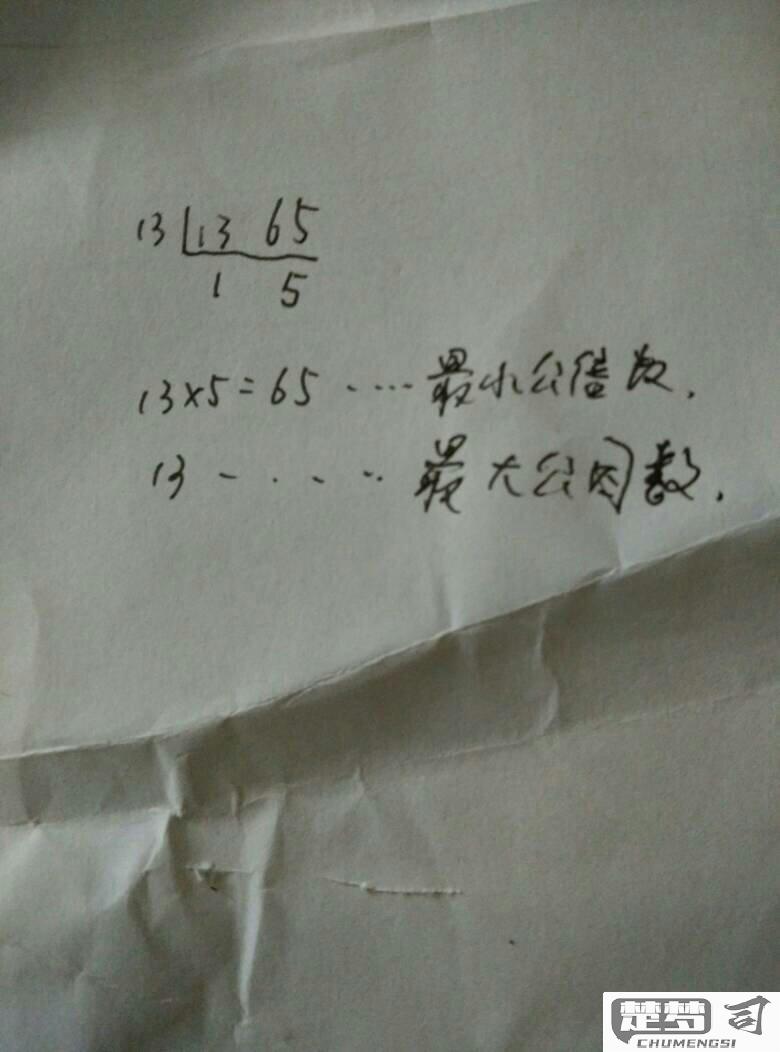 13 13 65
1 5
13×5=65 ····最小公倍数.
13 - · · · ·最大公因数.
楚梦司
CHUMENGSI